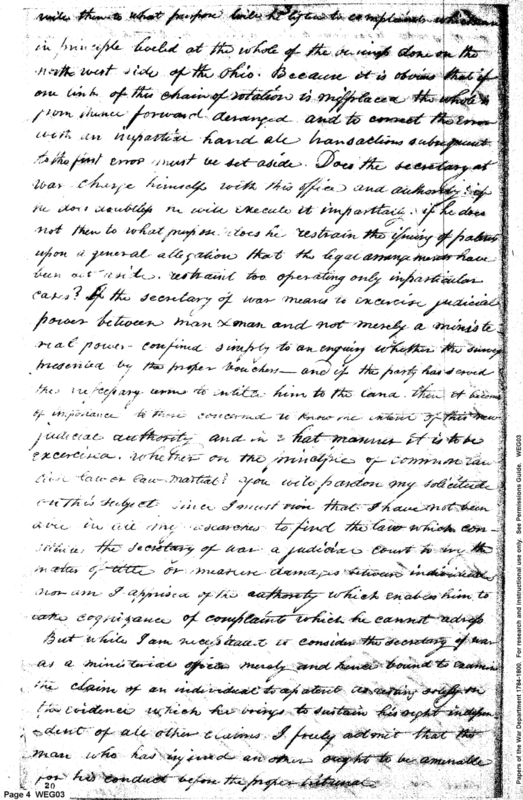 unless then to what purpose will he listen to complaints which are
in principle levied at the whole of the business done on the
north west side of the Ohio. Because it is obvious that if
one link of this chain of rotation is misplaced the whole is
from thence forward deranged and to correct the error
with an impartial hand all transactions subsequent
to the first error must be set aside. Does the secretary at
war charge himself with this office and authority? if
he does doubtless he will execute it impartially; if he does
not then to what purpose does he restrain the issuing of patents
upon a general allegation that the legal arrangements have
been set aside. restraint too operating only in particular
cases? If the secretary of war means to exercise judicial
power between man & man and not merely a ministe
rial power confined simply to an enquiry whether the survey
presented by the proper vouchers - and if the party has served
the necessary term to entitle him to the land. then it becomes
of importance to those concerned to know the extent of this new
judicial authority and in what manner it is to be
exercised. Whether on the principle of common law
civil law or law martial? You will pardon my solicitude
on this subject since I must own that I have not been
able in all my researches to find the law which con-
stitutes the secretary of war a judicial court to try the
matter of title or measure damages between individuals
nor am I apprised of the authority which enables him to
take cognizance of complaints which he cannot
But while I am necessitated to consider the secretary of war
as a ministerial officer merely and hence bound to examine
the claim of an individual to a patent solely on
the evidence which he brings to sustain his right indepen
dent of all other claims. I freely admit that the
man who has injured an other ought to be amenable
for his conduct before the proper tribunal
20
Page 4 WEG03
Papers of the War Department 1784-1800. For research and instructional use only. See Permissions Guide. WEG03